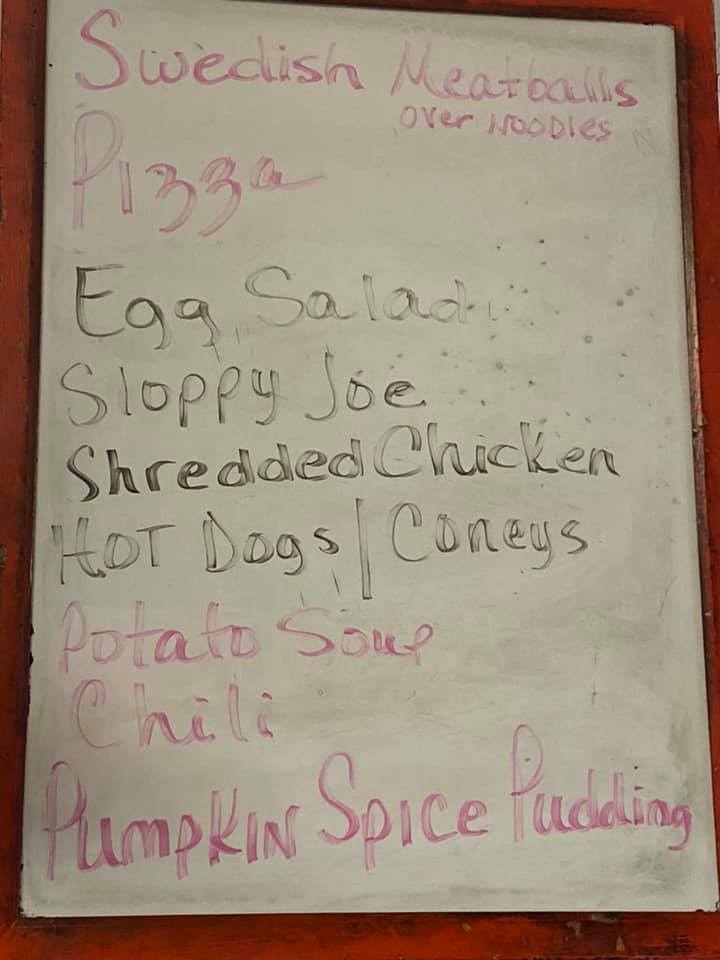 Swedish Meatballs
over NOODLES
Pizza
Egg Salad
Sloppy Joe
Shredded Chicken
HOT Dogs | Coneys
Potato Soup
Chili
PUMPKIN SPICE Pudding